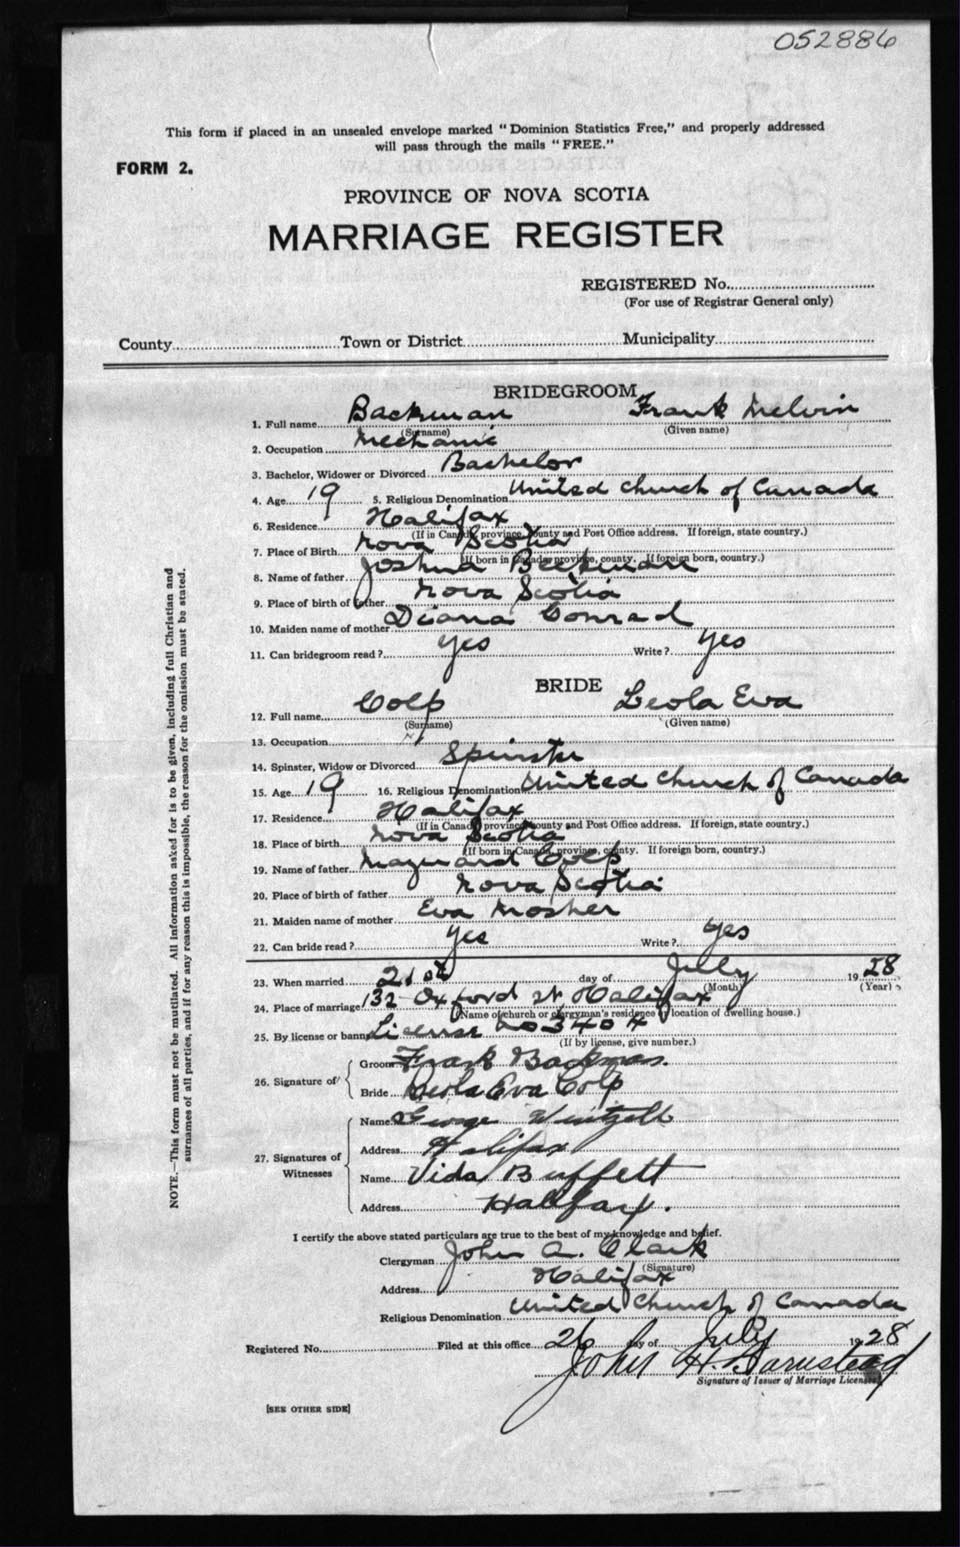 052886
This form if placed in an unsealed envelope marked "Dominion Statistics Free," and properly addressed
will pass through the mails "FREE."
FORM 2.
PROVINCE OF NOVA SCOTIA
MARRIAGE REGISTER
REGISTERED No.
(For use of Registrar General only)
County Town or District Municipality
BRIDEGROOM
1. Full name Backman Frank Melvin
(Surname) (Given name)
2. Occupation Mechanic
3. Bachelor, Widower or Divorced Bachelor
4. Age 19 5. Religious Denomination United Church of Canada
6. Residence Halifax
(If in Canada, province, county and Post Office address. If foreign, state country.)
7. Place of Birth Nova Scotia
(If born in Canada, province, county. If foreign born, country.)
8. Name of father Joshua Backman
9. Place of birth of father Nova Scotia
10. Maiden name of mother Diana Conrad
11. Can bridegroom read? Yes Write? Yes
BRIDE
12. Full name Colp Leola Eva
(Surname) (Given name)
13. Occupation
14. Spinster, Widow or Divorced Spinster
15. Age 19 16. Religious Denomination United Church of Canada
17. Residence Halifax
(If in Canada, province, county and Post Office address. If foreign, state country.)
18. Place of birth Nova Scotia
(If born in Canada, province, county. If foreign born, country.)
19. Name of father Maynard Colp
20. Place of birth of father Nova Scotia
21. Maiden name of mother Eva Mosher
22. Can bride read? Yes Write? Yes
23. When married 21st day of July 1928
(Month) (Year)
24. Place of marriage 132 Oxford St Halifax
(Name of church or clergyman's residence or location of dwelling house.)
25. By license or banns License no 3404
(If by license, give number.)
26. Signature of Groom Frank Backman.
Bride Leola Eva Colp
27. Signatures of Witnesses Name George Wentzell
Address Halifax
Name Vida Buffett
Address Halifax.
I certify the above stated particulars are true to the best of my knowledge and belief.
Clergyman John A. Clark
(Signature)
Address Halifax
Religious Denomination United Church of Canada
Registered No. Filed at this office 26 day of July 1928
John H. Barnstead
Signature of Issuer of Marriage Licenses
[SEE OTHER SIDE]
NOTE.—This form must not be mutilated. All information asked for is to be given, including full Christian and
surnames of all parties, and if for any reason this is impossible, the reason for the omission must be stated.